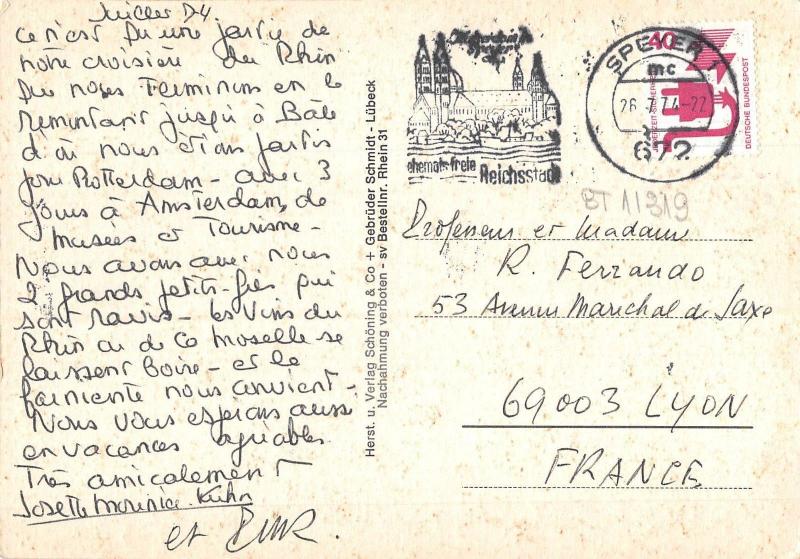 Juillet 74
Ce n'est qu'une partie de
notre croisière du Rhin
que nous terminons en le
remontant jusqu'à Bâle
d'où nous étions partis
pour Rotterdam - avec 3
jours à Amsterdam, de
musées et Tourisme -
Nous avons avec nous
2 grands petits-fils qui
sont ravis - les vins du
Rhin ou de la Moselle se
laissent boire - et le
farniente nous convient -
Nous vous espérons aussi
en vacances agréables
Très amicalement
Josette Kühn
et
Herst. u. Verlag Schöning & Co + Gebrüder Schmidt - Lübeck
Nachahmung verboten - sv Bestellnr. Rhein 31
ehemals freie Reichsstadt
SPEYER
mc
26.7.74-22
672
40
JEDERZEIT SICHERHEIT
DEUTSCHE BUNDESPOST
BT 11319
Professeur et Madame
R. Ferrando
53 Avenue Maréchal de Saxe
69003 LYON
FRANCE